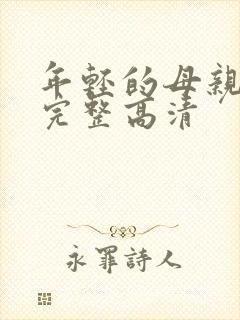 年轻的母親
完整高清
永罪詩人